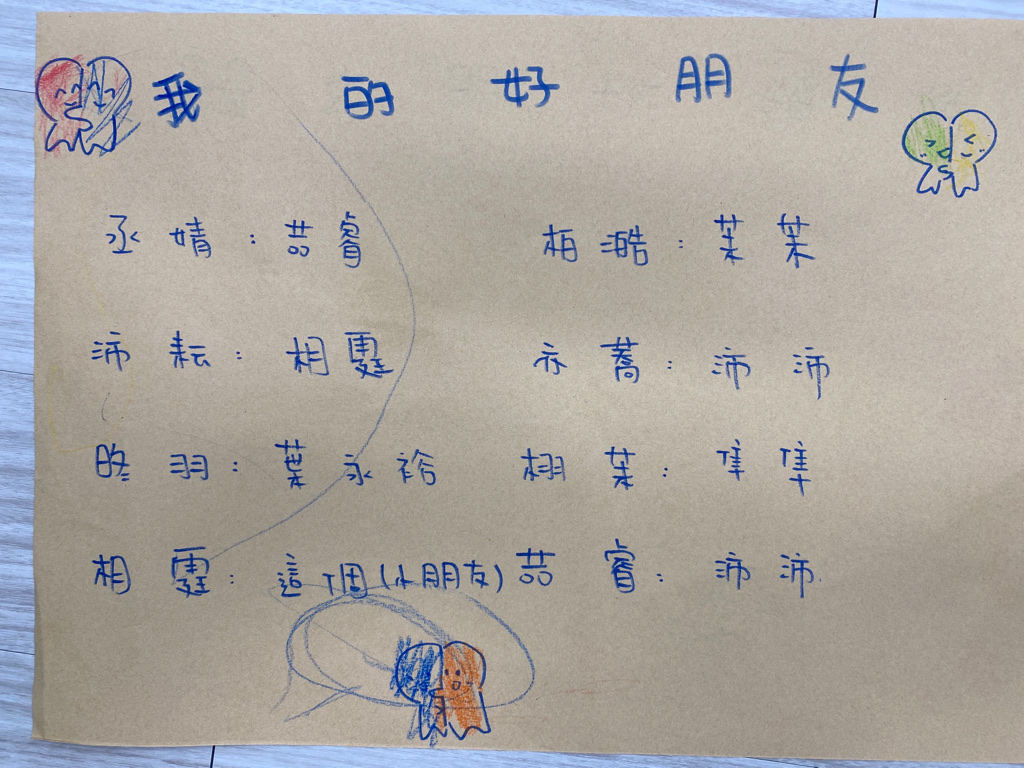 我的好朋友
丞婧：喆睿　柏澔：茱茱
沛耘：相霆　亦蕎：沛沛
昸羽：葉永裕　栩茱：隼隼
相霆：這個(小朋友)　喆睿：沛沛